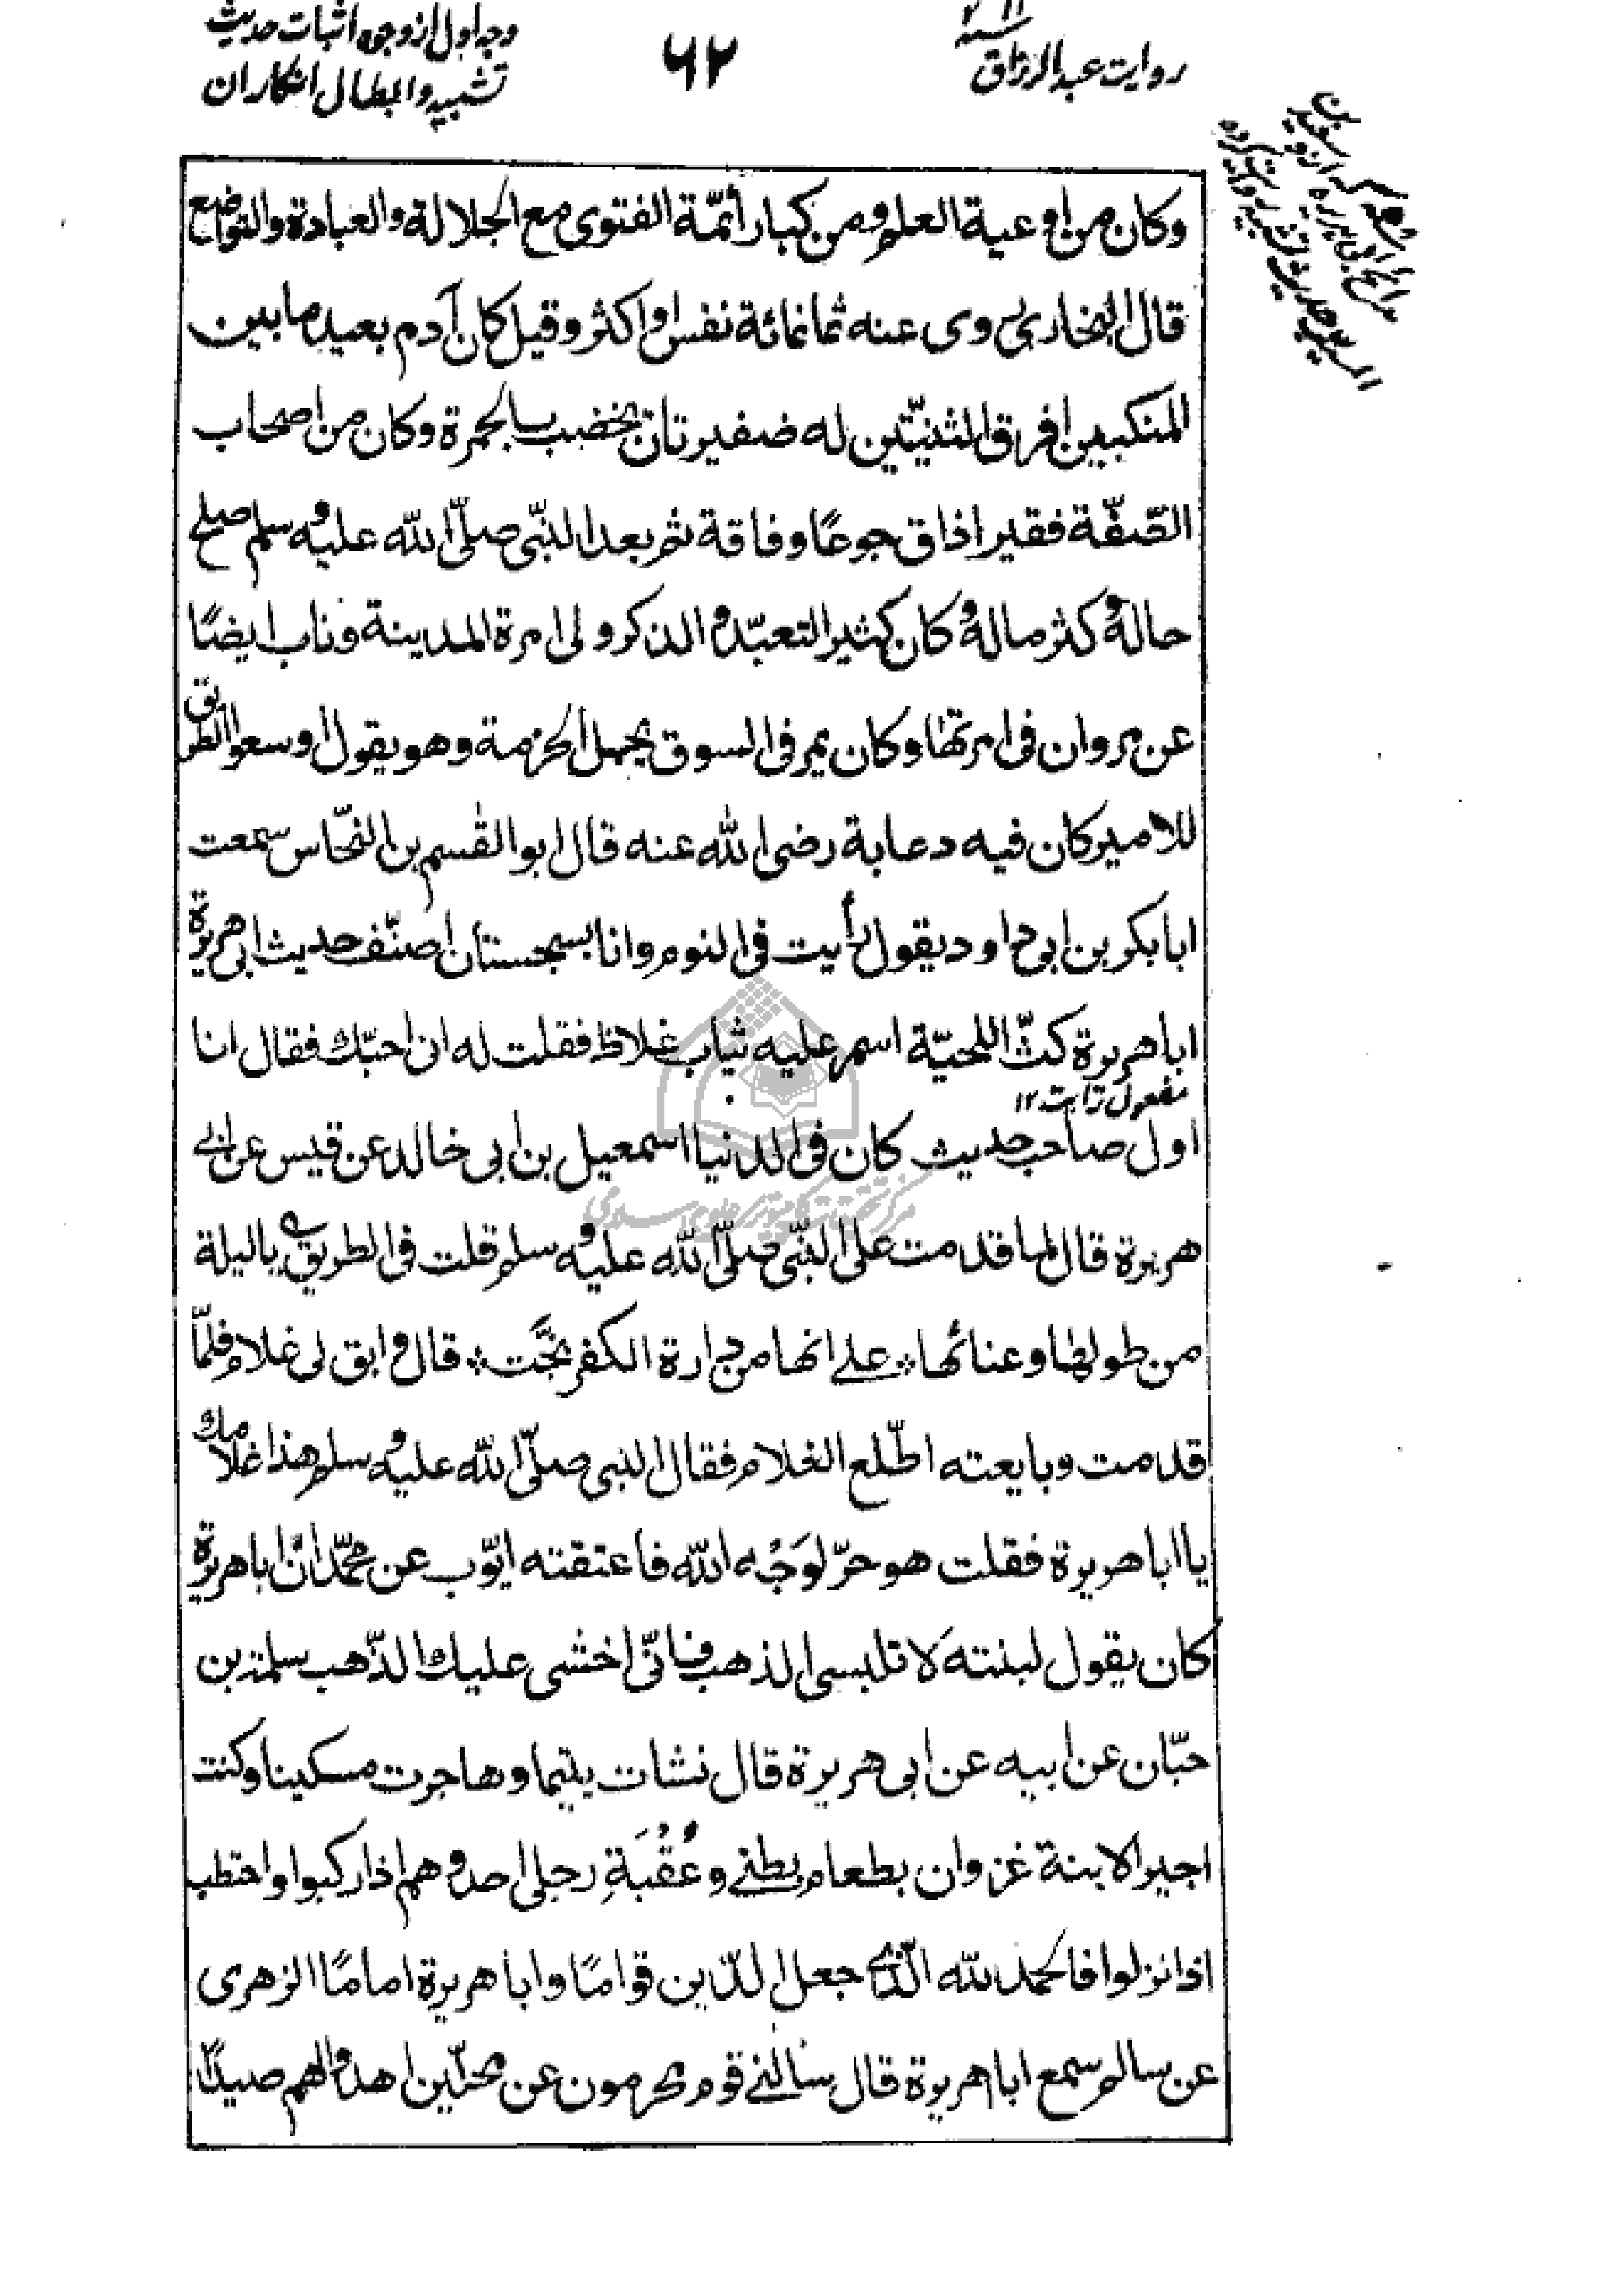 روایت عبدالرزاق
۶۲
وجه اول از وجوه اثبات حدیث
تشبیه و ابطال انکار ان
وكان من اوعية العلم ومن كبار أئمّة الفتوى مع الجلالة والعبادة والتواضع
قال البخاری روی عنه ثمانمائة نفس او اكثر وقيل كان آدم بعيد ما بين
المنكبين افرق الثنيّتين له ضفيرتان يخضب بالحمرة وكان من اصحاب
الصّفّة فقيرا ذاق جوعًا وفاقة ثم بعد النّبی صلّی الله عليه وسلم صلح
حالهُ وكثر مالهُ وكان كثير التعبّد والذكر ولی امرة المدينة وناب ايضًا
عن مروان فی امرتها وكان يمر فی السوق يحمل الحزمة وهو يقول اوسعوا الطريق
للامير كان فيه دعابة رضی الله عنه قال ابو القٰسم بن النحّاس سمعت
ابا بكر بن ابی داود يقول رأيت فی النوم وانا بسجستان اصنّف حديث ابی هريرة
ابا هريرة كثّ اللحيّة اسمر عليه ثياب غلاظ فقلت له انی احبّك فقال انا
مفعول رایت ۱۲
اول صاحب حديث كان فی الدنيا اسمعيل بن ابی خالد عن قيس عن ابی
هريرة قال لما قدمت علی النّبی صلّی الله عليه وسلم قلت فی الطريق يا ليلة
من طولها وعنائها علی انها من دارة الكفر نجّت قال وابق لی غلام فلمّا
قدمت وبايعته اطّلع الغلام فقال النبی صلّی الله عليه وسلم هذا غلامك
يا ابا هريرة فقلت هو حرّ لوَجْه الله فاعتقته ايّوب عن محمّد انّ ابا هريرة
كان يقول لبنته لَا تلبسی الذهب فانّی اخشی عليك الذّهب سلم بن
حبّان عن ابيه عن ابی هريرة قال نشات يتيما وهاجرت مسكينا وكنت
اجيرا لابنة غزوان بطعام بطنی وعُقْبَةِ رجلی احدوهم اذا ركبوا واحتطب
اذا نزلوا فالحمد لله الّذی جعل الدّين قوامًا وابا هريرة امامًا الزهری
عن سالم سمع ابا هريرة قال سالنی قوم محرمون عن محلّين اهدوا لهم صيدًا